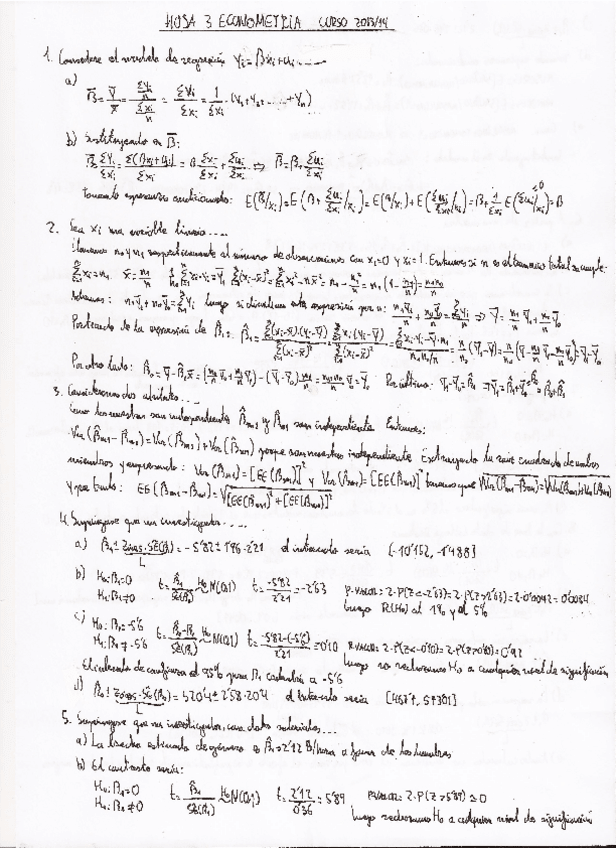 HOJA 3 ECONOMETRÍA CURSO 2013/14
1. Considere el modelo de regresión Yi = βxi + ui .....
a)
β̄ = Ȳ/x̄ = (ΣYi/n)/(Σxi/n) = ΣYi/Σxi = 1/Σxi · (Y1 + Y2 + ... + Yn)
b) Sustituyendo en β̄:
β̄ = ΣYi/Σxi = Σ(βxi + ui)/Σxi = β Σxi/Σxi + Σui/Σxi ⇒ β̄ = β + Σui/Σxi
tomando esperanzas condicionadas: E(β̄/xi) = E(β + Σui/Σxi /xi) = E(β/xi) + E(Σui/Σxi /xi) = β + 1/Σxi E(Σui/xi) = β
2. Sea xi una variable binaria .....
llamamos n0 y n1 respectivamente al número de observaciones con xi=0 y xi=1. Entonces si n es el tamaño total se cumple:
Σxi = n1 x̄ = n1/n 1/n1 Σxi·Yi = Ȳ1 Σ(xi - x̄)² = Σxi² - n x̄² = n1 - n1²/n = n1(1 - n1/n) = n1n0/n
Además: n1Ȳ1 + n0Ȳ0 = ΣYi luego si dividimos esta expresión por n: n1Ȳ1/n + n0Ȳ0/n = ΣYi/n ⇒ Ȳ = n1/n Ȳ1 + n0/n Ȳ0
Partiendo de la expresión de β̂1: β̂1 = Σ(xi - x̄)·(Yi - Ȳ)/Σ(xi - x̄)² = Σxi·(Yi - Ȳ)/Σ(xi - x̄)² = (Σxi·Yi - Ȳ·n1)/(n0n1/n) = n/n0 (Ȳ1 - Ȳ) = n/n0 (Ȳ1 - n1/n Ȳ1 - n0/n Ȳ0) = Ȳ1 - Ȳ0
Por otro lado: β̂0 = Ȳ - β̂1x̄ = (n1/n Ȳ1 + n0/n Ȳ0) - (Ȳ1 - Ȳ0)·n1/n = (n1+n0)/n Ȳ0 = Ȳ0 Por último: Ȳ1 - Ȳ0 = β̂1 → Ȳ1 = β̂1 + Ȳ0 = β̂0 + β̂1
3. Consideremos dos
Como las muestras son independientes β̂m1 y β̂h1 son independientes Entonces:
Var(β̂m1 - β̂h1) = Var(β̂m1) + Var(β̂h1) porque son muestras independientes Extrayendo la raíz cuadrada de ambos
miembros y expresando: Var(β̂m1) = [EE(β̂m1)]² y Var(β̂h1) = [EE(β̂h1)]² tenemos que √Var(β̂m1 - β̂h1) = √Var(β̂m1) + Var(β̂h1)
y por tanto: EE(β̂m1 - β̂h1) = √[EE(β̂m1)]² + [EE(β̂h1)]²
4. Supongase que un investigador .....
a) β̂1 ± Z0'025·SE(β̂1) = -5'82 ± 1'96·2'21 el intervalo sería [-10'152, -1'488]
b) H0: β1 = 0 t = β̂1/SE(β̂1) H0 N(0,1) t = -5'82/2'21 = -2'63 P-valor = 2·P(Z<-2'63) = 2·P(Z>2'63) = 2·0'0042 = 0'0084
H1: β1 ≠ 0 luego R(H0) al 1% y al 5%
c) H0: β1 = -5'6 t = (β̂1 - β1)/SE(β̂1) H0 N(0,1) t = (-5'82-(-5'6))/2'21 = -0'10 P-valor = 2·P(Z<-0'10) = 2·P(Z>0'10) = 0'92
H1: β1 ≠ -5'6 luego no rechazamos H0 a cualquier nivel de significación
El intervalo de confianza al 95% para β1 contendría a -5'6
d) β̂0 ± Z0'005·SE(β̂0) = 520'4 ± 2'58·20'4 el intervalo sería [467'7, 573'01]
5. Supongase que un investigador, con datos salariales ...
a) La brecha estimada de género es β̂1 = 2'12 $/hora a favor de los hombres
b) El contraste sería:
H0: β1 = 0 t = β̂1/SE(β̂1) H0 N(0,1) t = 2'12/0'36 = 5'89 P-valor = 2·P(Z>5'89) ≃ 0
H1: β1 ≠ 0 luego rechazamos H0 a cualquier nivel de significación